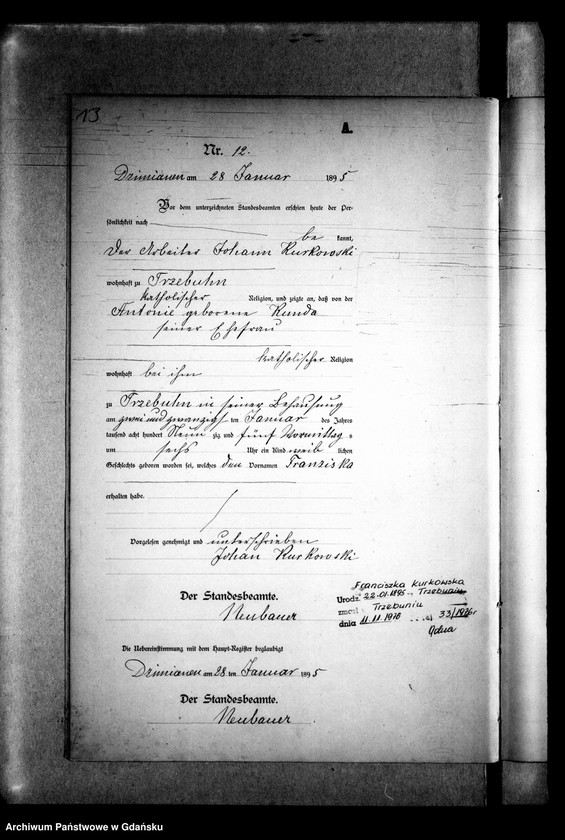 13
A.
Nr. 12.
Dzimianen am 28 Januar 1895
Vor dem unterzeichneten Standesbeamten erschien heute der Per-
sönlichkeit nach
be kannt,
Der Arbeiter Johann Kurkowski
wohnhaft zu Trzebuhn
katholischer Religion, und zeigte an, daß von der
Antonie geborene Kunda
seiner Ehefrau
katholischer Religion
wohnhaft bei ihm
zu Trzebuhn in seiner Behausung
am zwei und zwanzigsten Januar des Jahres
tausend acht hundert Neun zig und fünf Vormittags
um sechs Uhr ein Kind weib lichen
Geschlechts geboren worden sei, welches den Vornamen Franziska
erhalten habe.
Vorgelesen genehmigt und unterschrieben
Johan Kurkowski
Der Standesbeamte.
Neubauer
Franciszka Kurkowska
Urodz. 22.01.1895 Trzebuniu
Trzebuniu
dnia 11.11.1976 33/1976r
Die Uebereinstimmung mit dem Haupt-Register beglaubigt
Dzimianen am 28 ten Januar 1895
Der Standesbeamte.
Neubauer
Archiwum Państwowe w Gdańsku